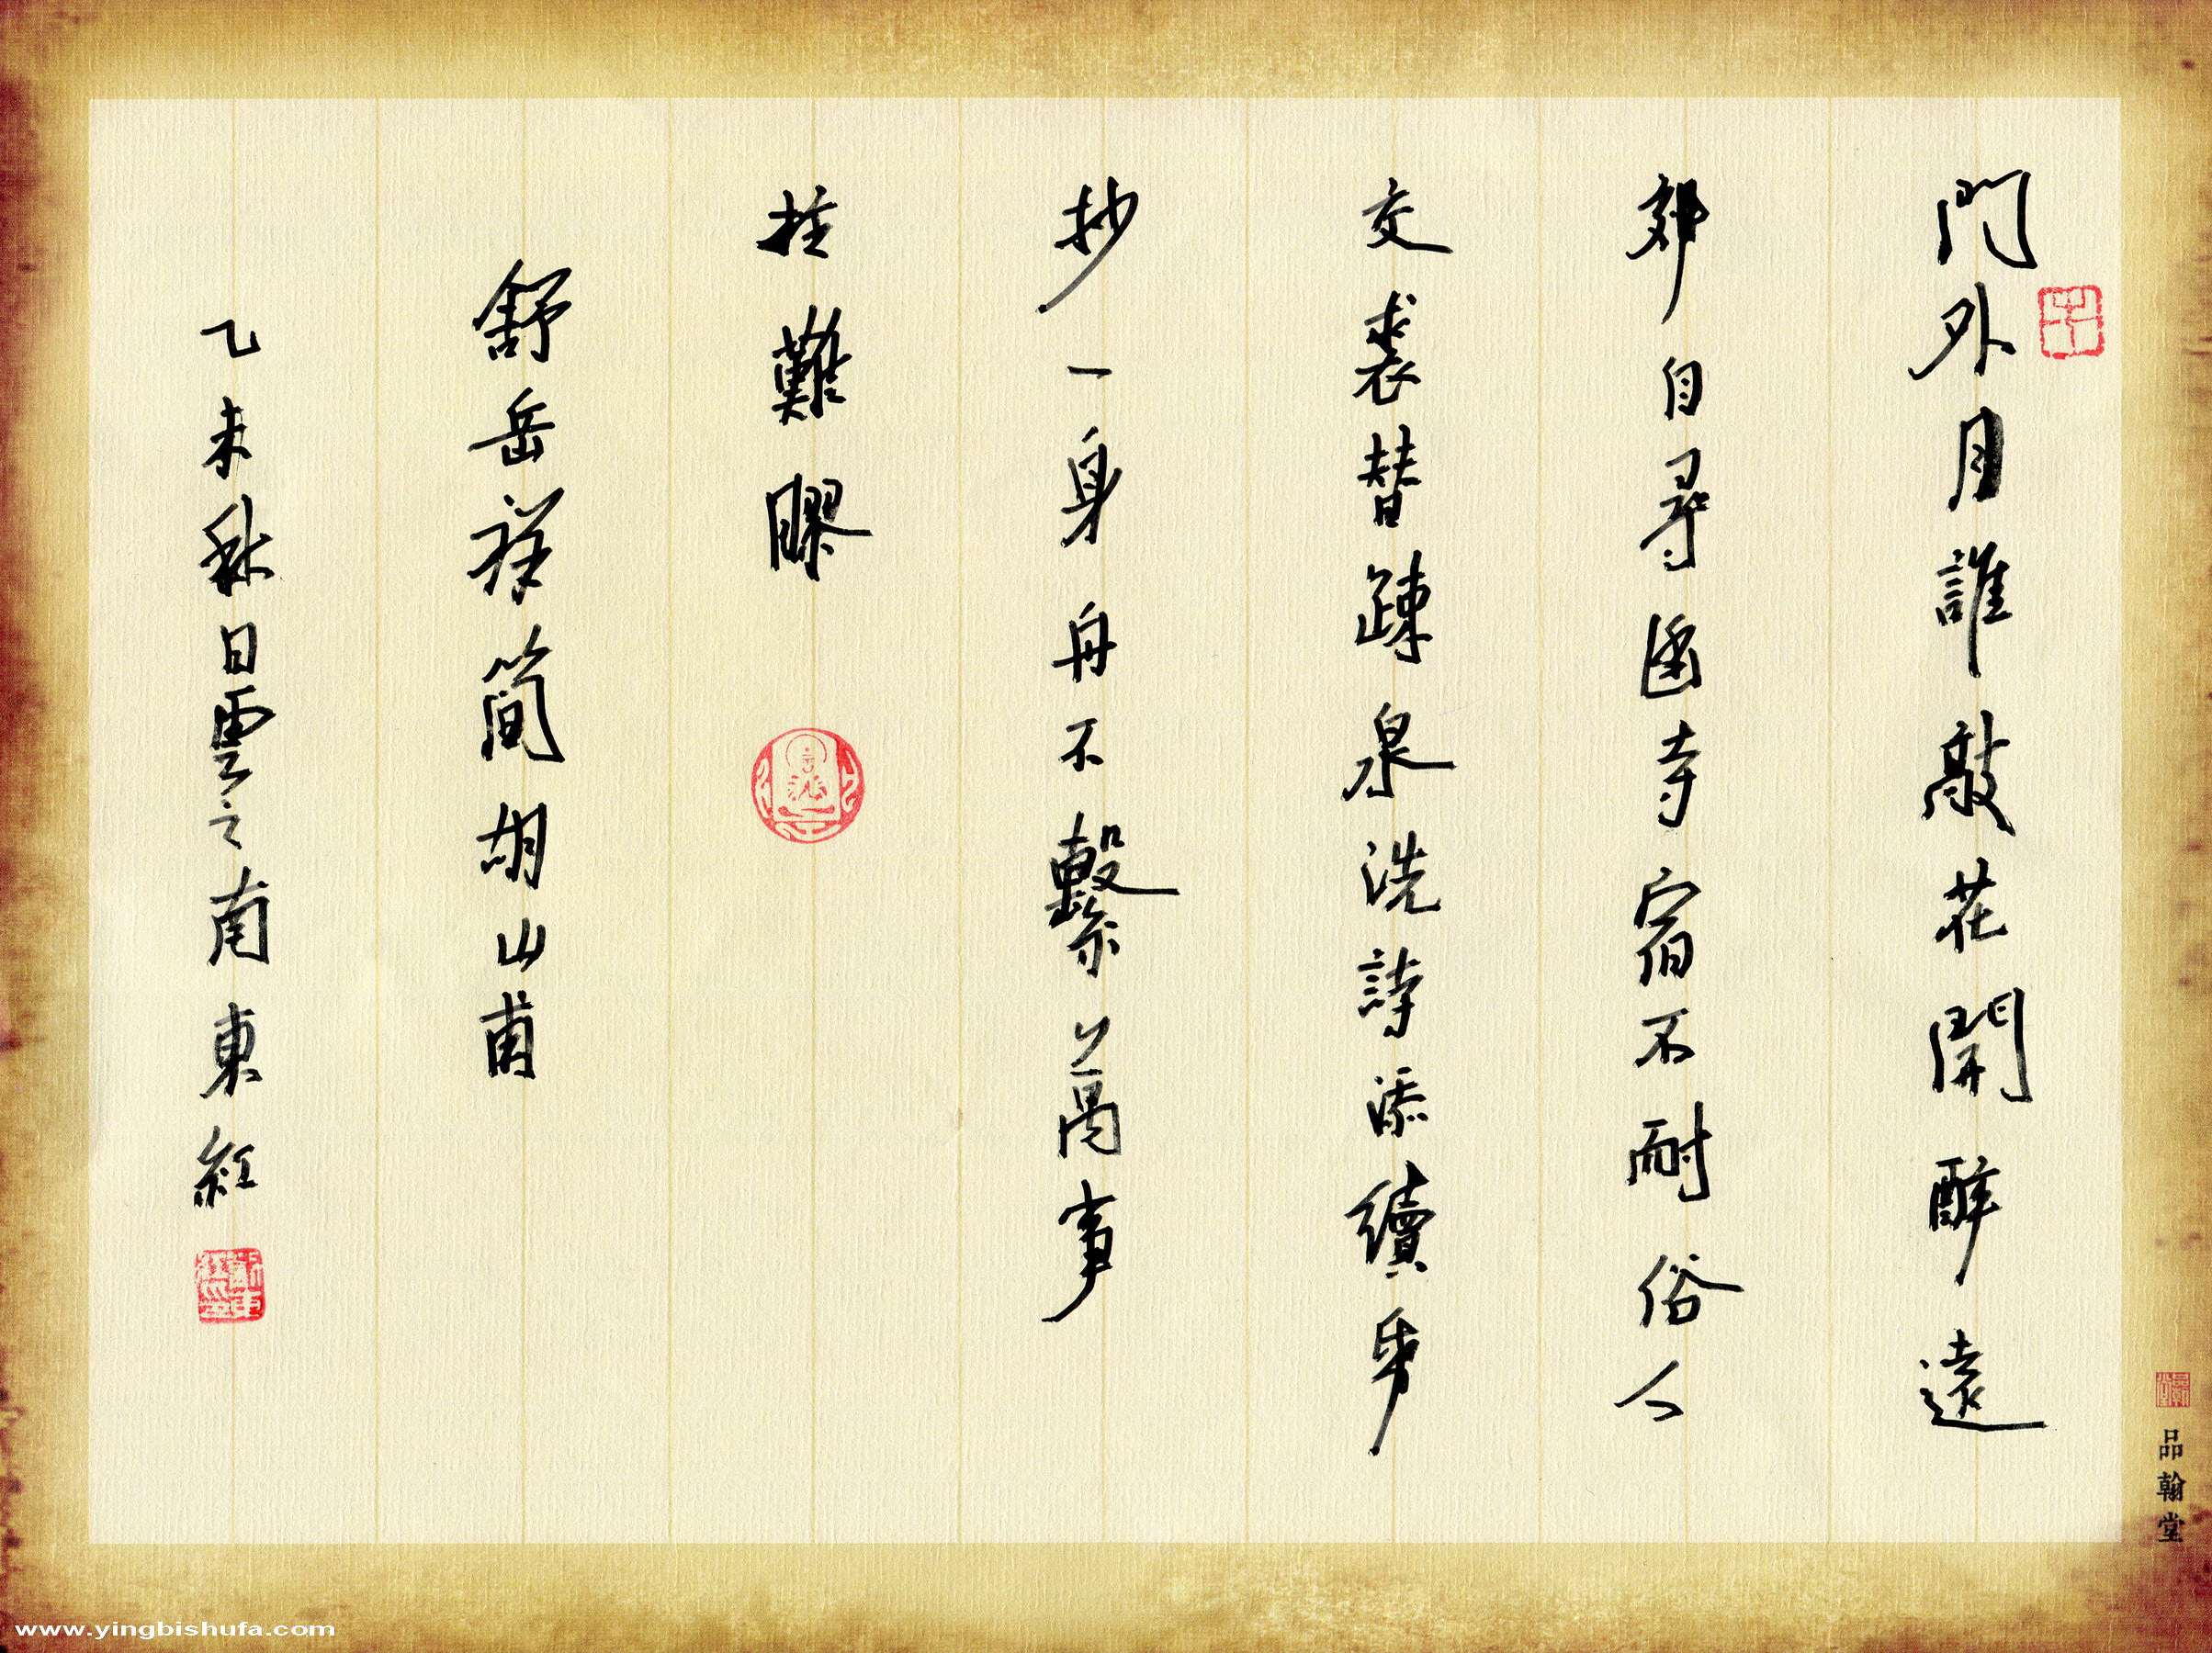 門外月誰敲花開醉遠
郊自尋幽寺宿不耐俗人
交裘替疎泉洗詩添續步
抄一身舟不繫萬事
柱難膠
舒岳祥简胡山甫
乙未秋日雲之南東紅
品翰堂
www.yingbishufa.com